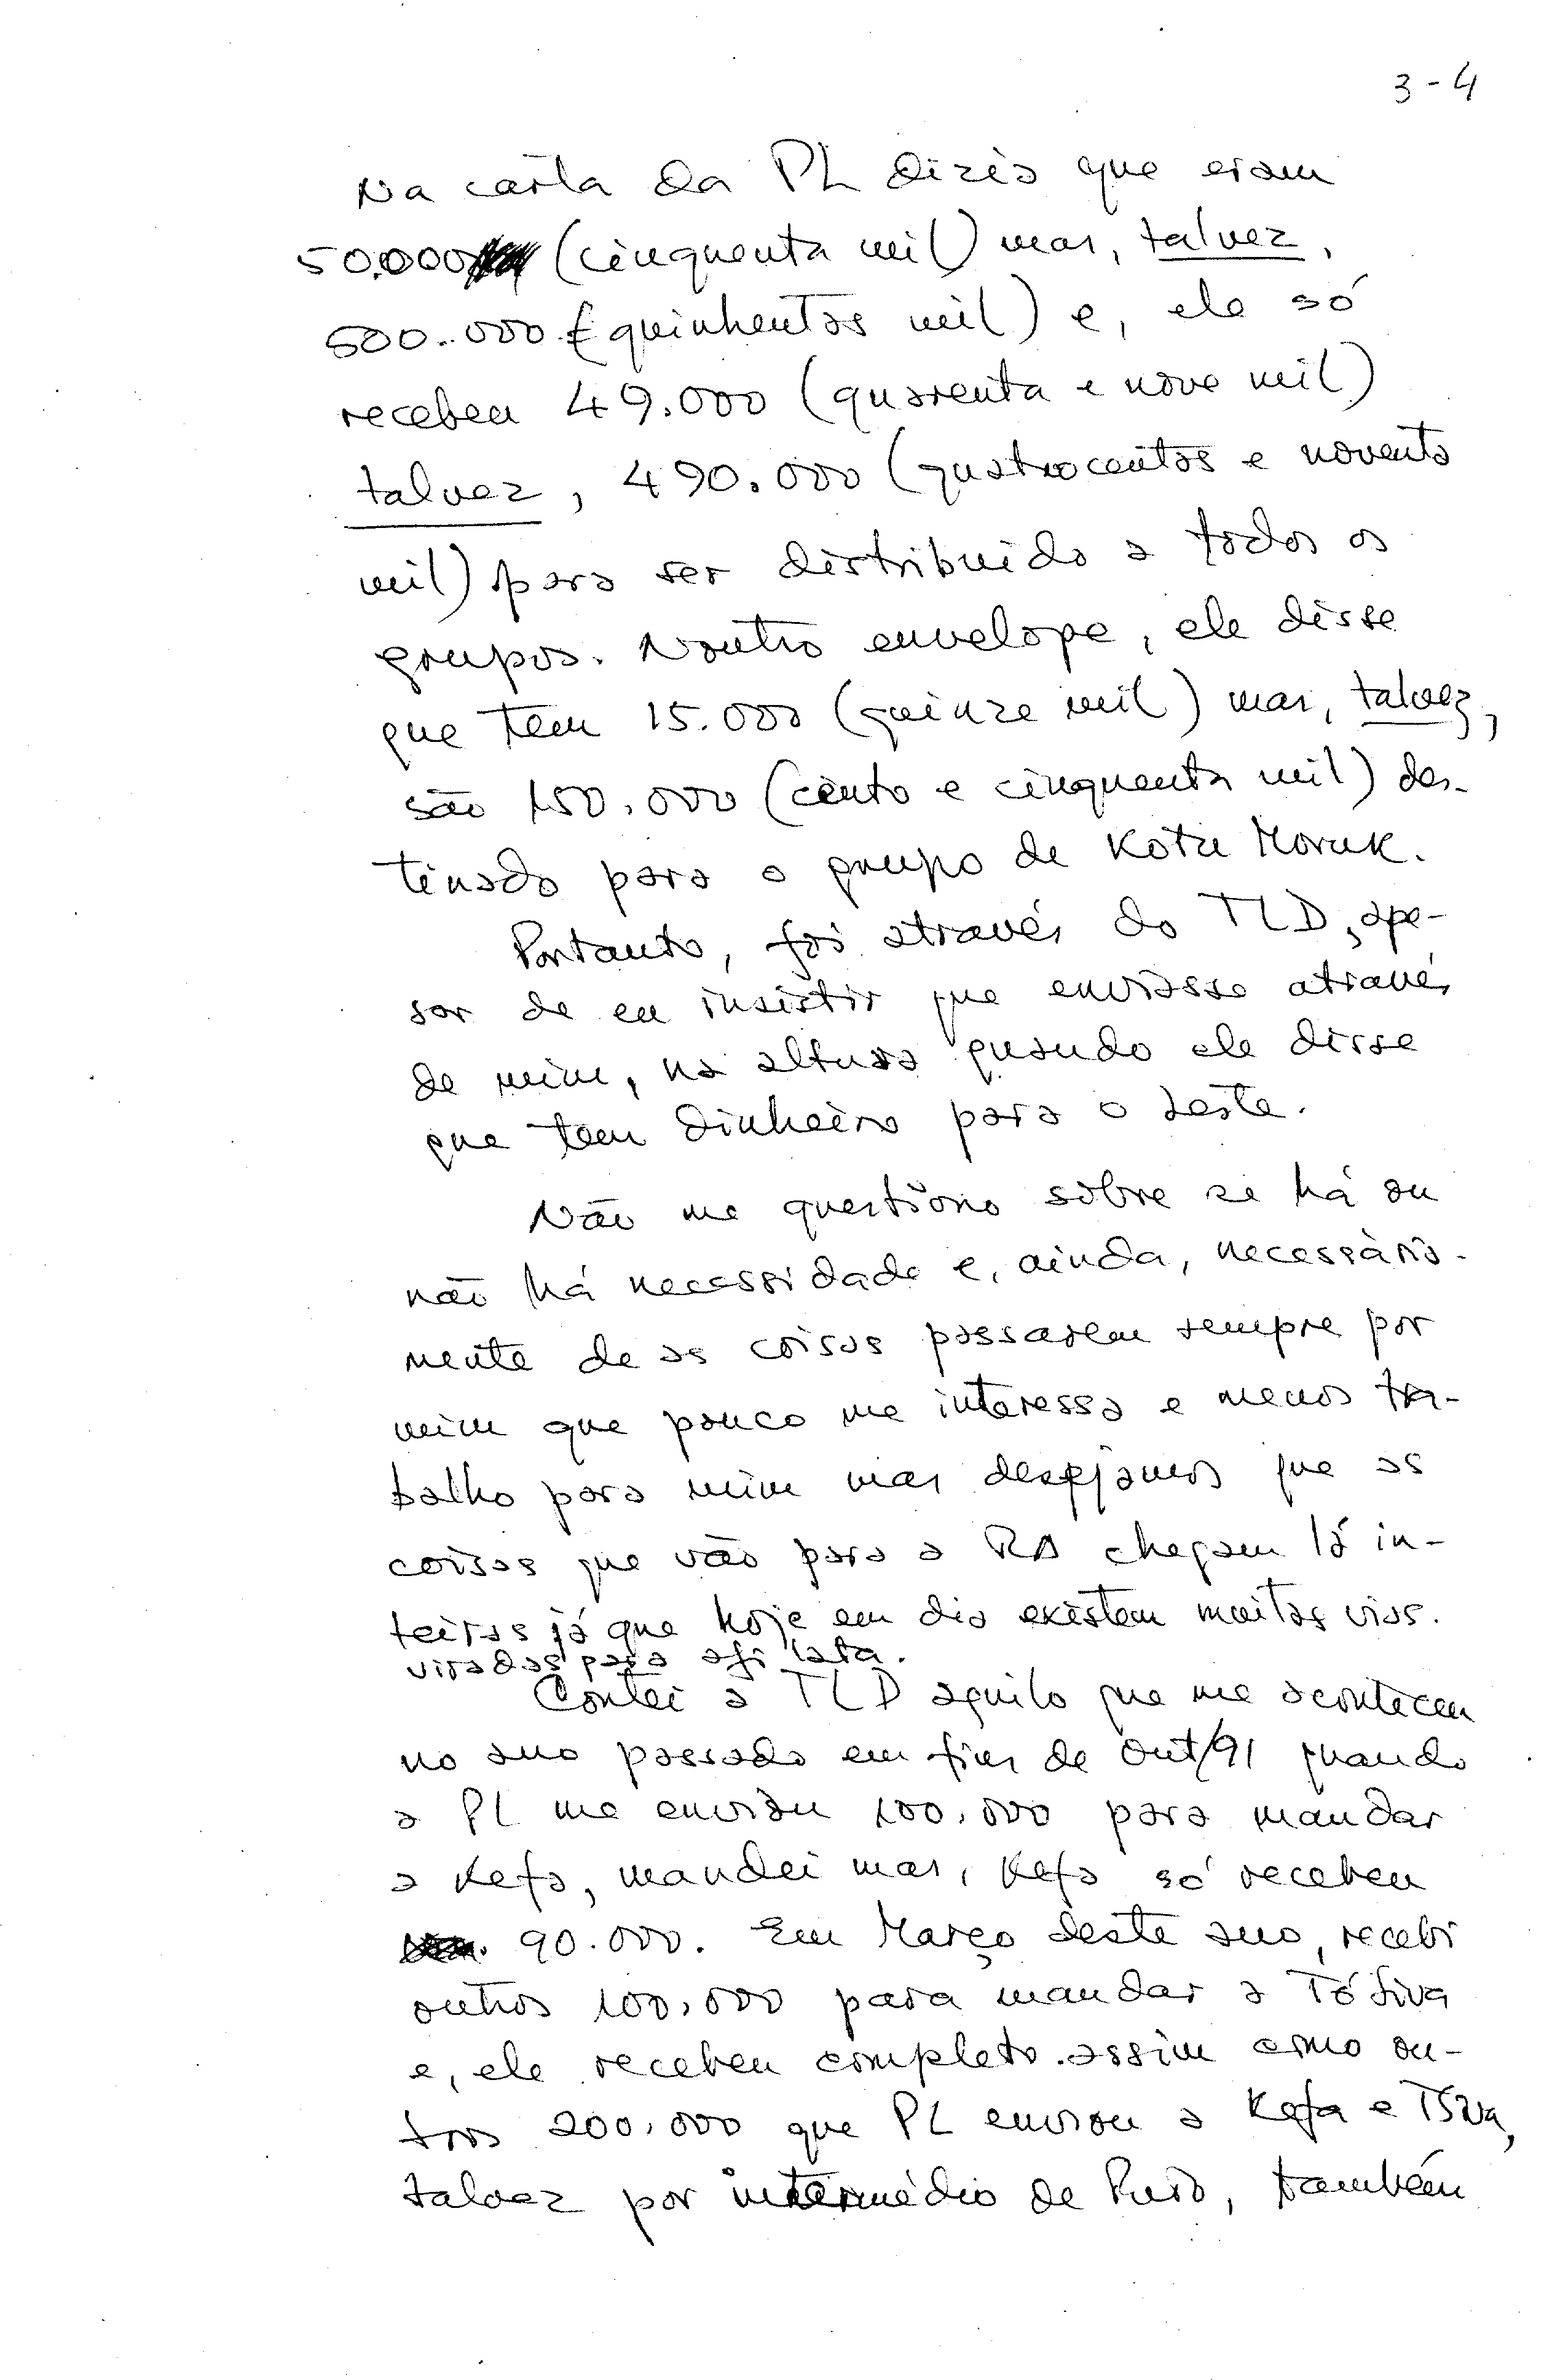 3-4
Na carta da PL dizia que eram
50.000 (cinquenta mil) mas, talvez,
500.000 (quinhentos mil) e, ele só
recebeu 49.000 (quarenta e nove mil)
talvez, 490.000 (quatrocentos e noventa
mil) para ser distribuido a todos os
grupos. Noutro envelope, ele disse
que tem 15.000 (quinze mil) mas, talvez,
são 150.000 (cento e cinquenta mil) des-
tinado para o grupo de Kotu Moruk.
Portanto, foi através do TLD, ape-
sar de eu insistir que enviasse através
de mim, na altura quando ele disse
que tem dinheiro para o Leste.
Não me questiono sobre se há ou
não há necessidade e, ainda, necessária-
mente de as coisas passarem sempre por
mim que pouco me interessa e menos tra-
balho para mim mas desejamos que as
coisas que vão para a RA chegam lá in-
teiras já que hoje em dia existem muitas vias.
viradas para
Contei a TLD aquilo que me aconteceu
no ano passado em fins de Out/91 quando
a PL me enviou 100.000 para mandar
a Kefa, mandei mas, Kefa só recebeu
90.000. Em Março deste ano, recebi
outros 100.000 para mandar a
e, ele recebeu completo. assim como ou-
tros 200.000 que PL enviou a Kefa e
talvez por intermédio de também